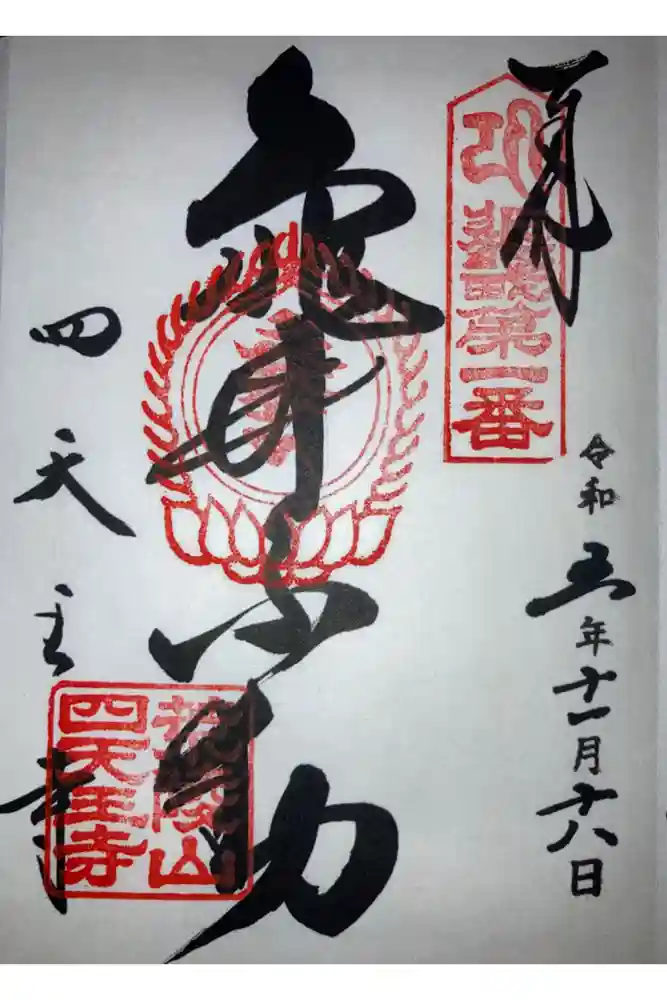 奉拝
近畿第一番
令和五年十一月十八日
亀井不動
四天王寺
荒陵山
四天王寺